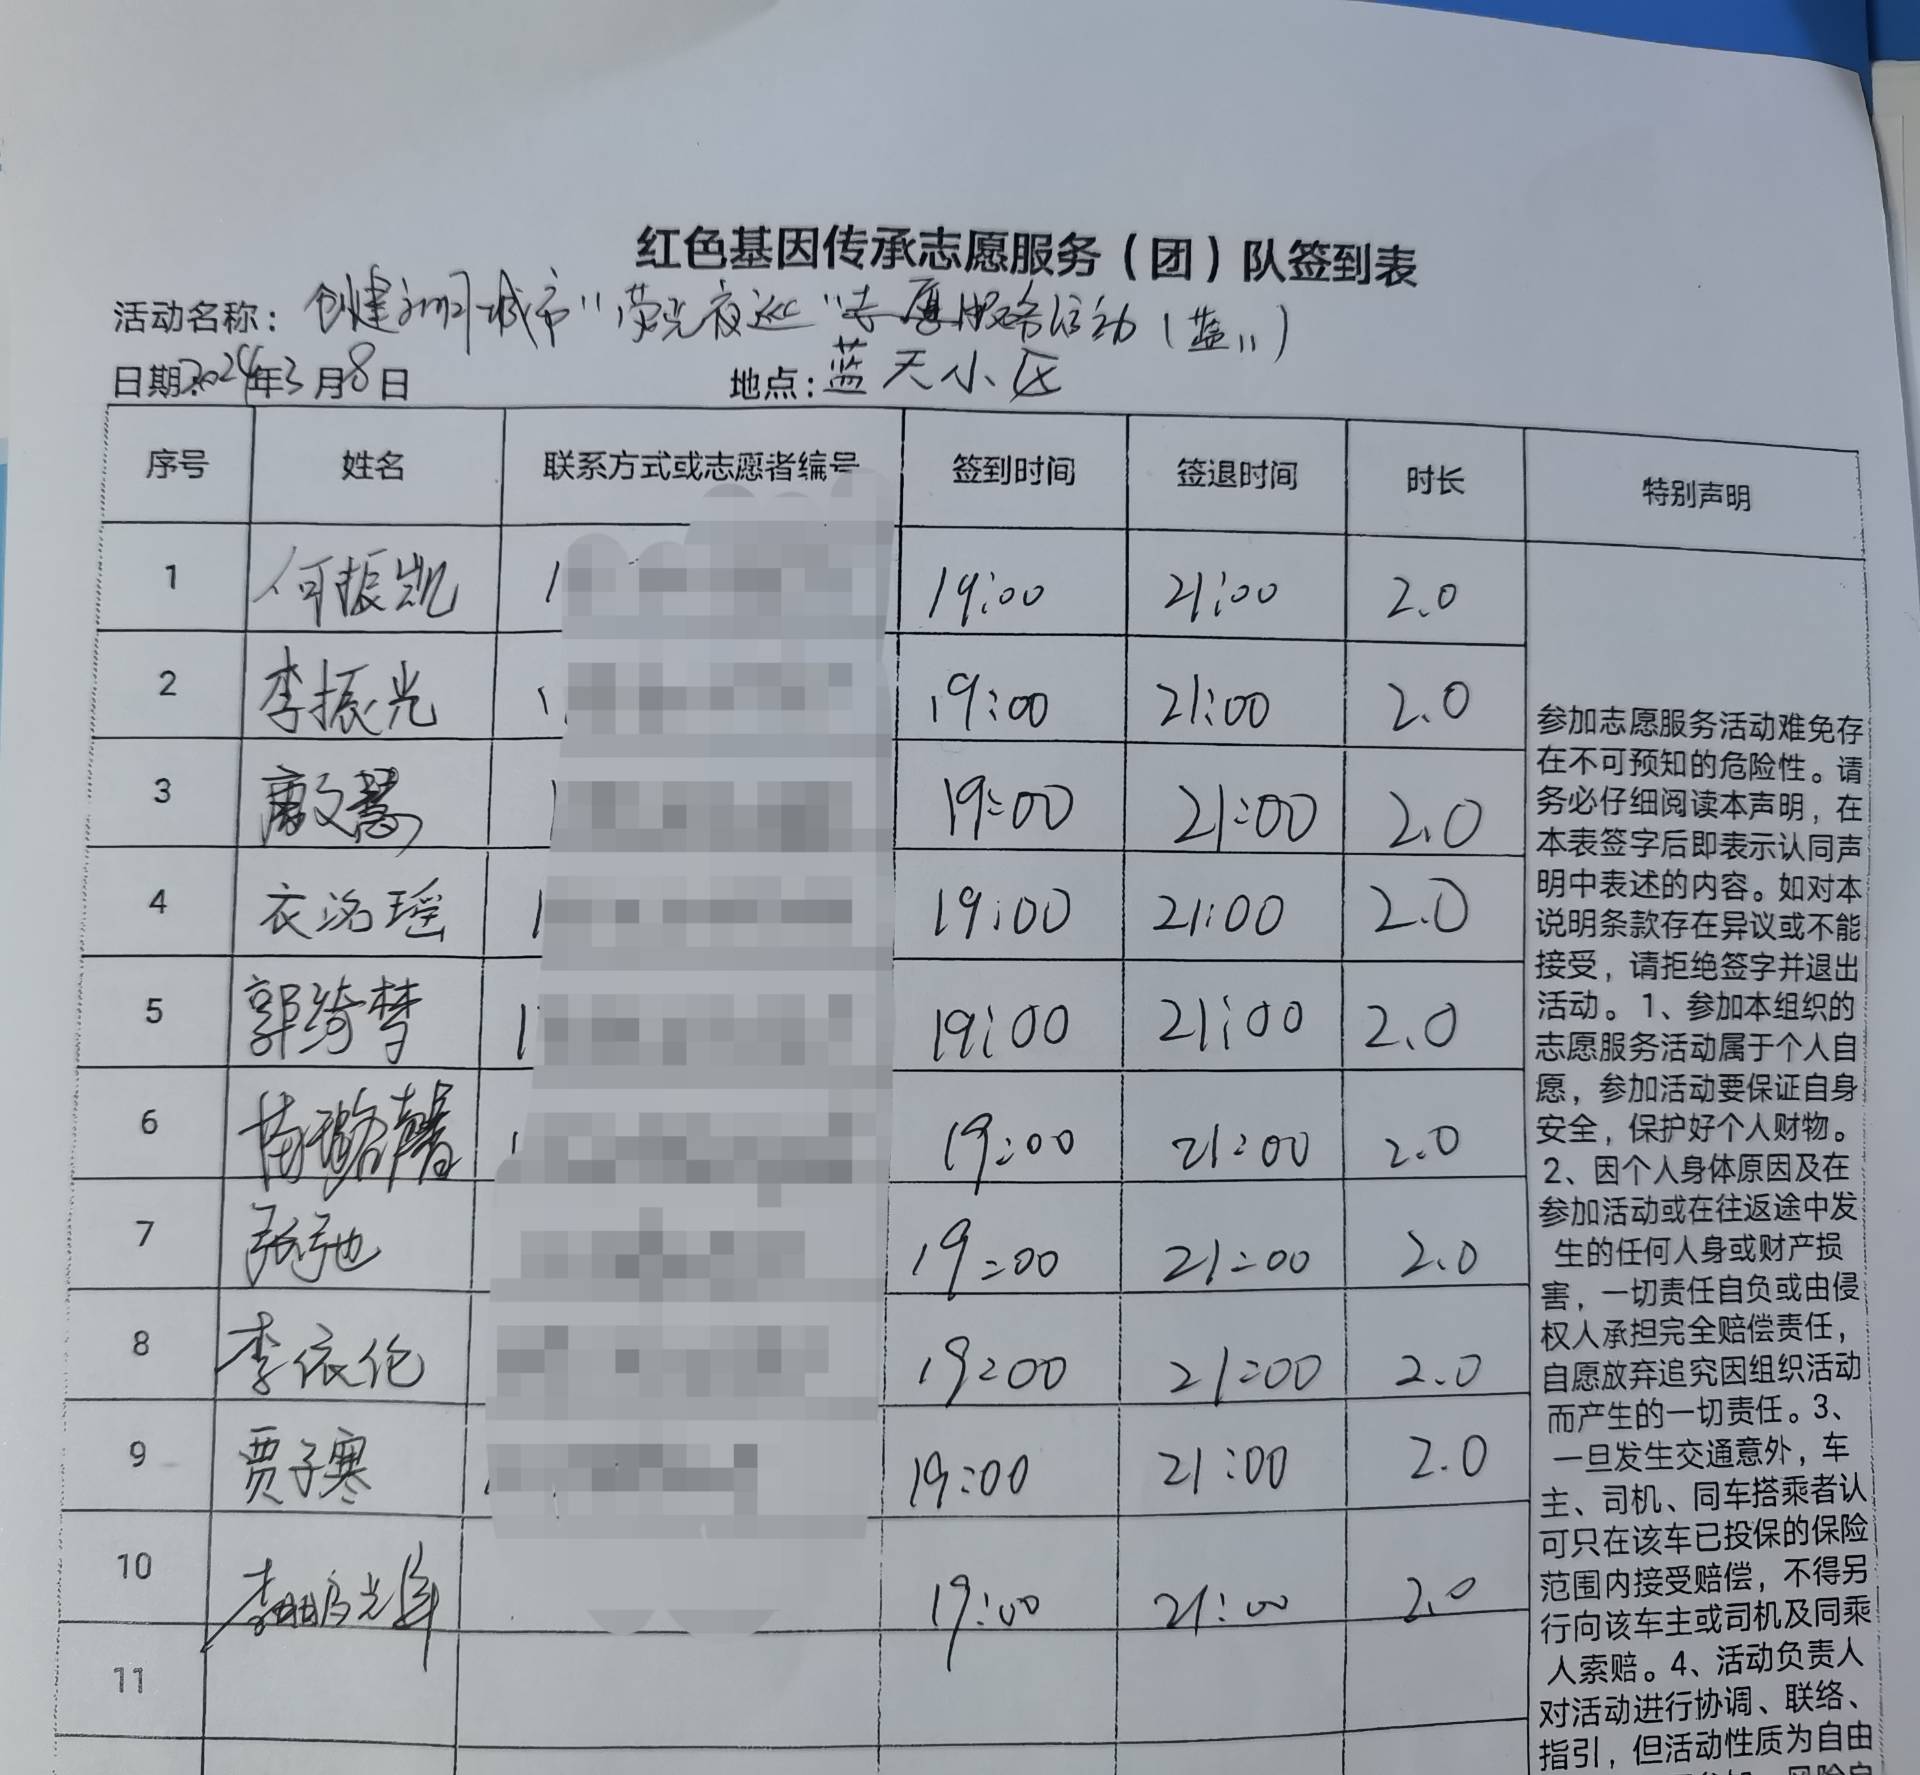 红色基因传承志愿服务（团）队签到表
活动名称：创建文明城市"荧光夜巡"志愿服务活动（蓝
日期：2024年3月8日 地点：蓝天小区
序号 姓名 联系方式或志愿者编号 签到时间 签退时间 时长 特别声明
1 何振凯 1 19:00 21:00 2.0
2 李振光 19:00 21:00 2.0
3 唐文慧 19:00 21:00 2.0
4 衣洺瑶 1 19:00 21:00 2.0
5 郭绮梦 1 19:00 21:00 2.0
6 19:00 21:00 2.0
7 张弛 19:00 21:00 2.0
8 李依伦 19:00 21:00 2.0
9 贾子寒 19:00 21:00 2.0
10 李 19:00 21:00 2.0
11
参加志愿服务活动难免存
在不可预知的危险性。请
务必仔细阅读本声明，在
本表签字后即表示认同声
明中表述的内容。如对本
说明条款存在异议或不能
接受，请拒绝签字并退出
活动。1、参加本组织的
志愿服务活动属于个人自
愿，参加活动要保证自身
安全，保护好个人财物。
2、因个人身体原因及在
参加活动或在往返途中发
生的任何人身或财产损
害，一切责任自负或由侵
权人承担完全赔偿责任，
自愿放弃追究因组织活动
而产生的一切责任。3、
一旦发生交通意外，车
主、司机、同车搭乘者认
可只在该车已投保的保险
范围内接受赔偿，不得另
行向该车主或司机及同乘
人索赔。4、活动负责人
对活动进行协调、联络、
指引，但活动性质为自由